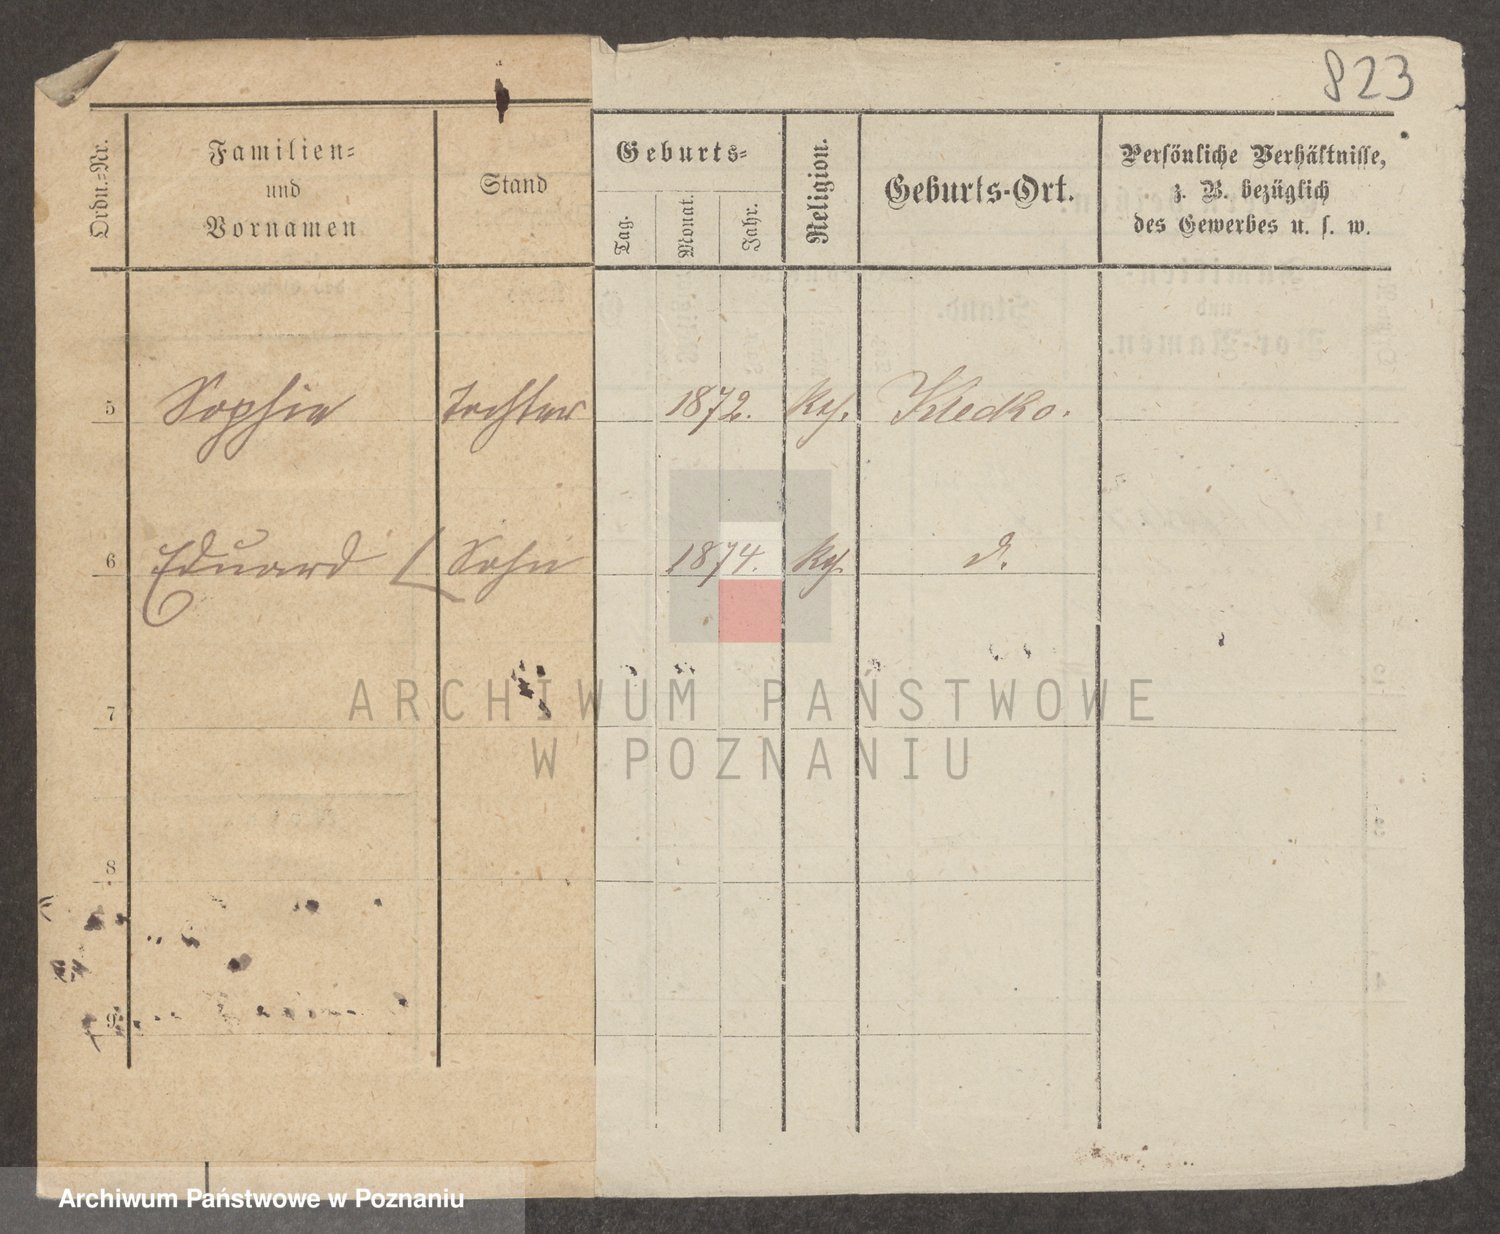 823
Ordn.-Nr.
Familien-
und
Vornamen
Stand
Geburts-
Tag.
Monat.
Jahr.
Religion.
Geburts-Ort.
Persönliche Verhältnisse,
z. B. bezüglich
des Gewerbes u. s. w.
5 Sophie Tochter 1872. Kth. Klecko.
6 Eduard Sohn 1874. Kth. d.
7
8
9
ARCHIWUM PAŃSTWOWE
W POZNANIU
Archiwum Państwowe w Poznaniu